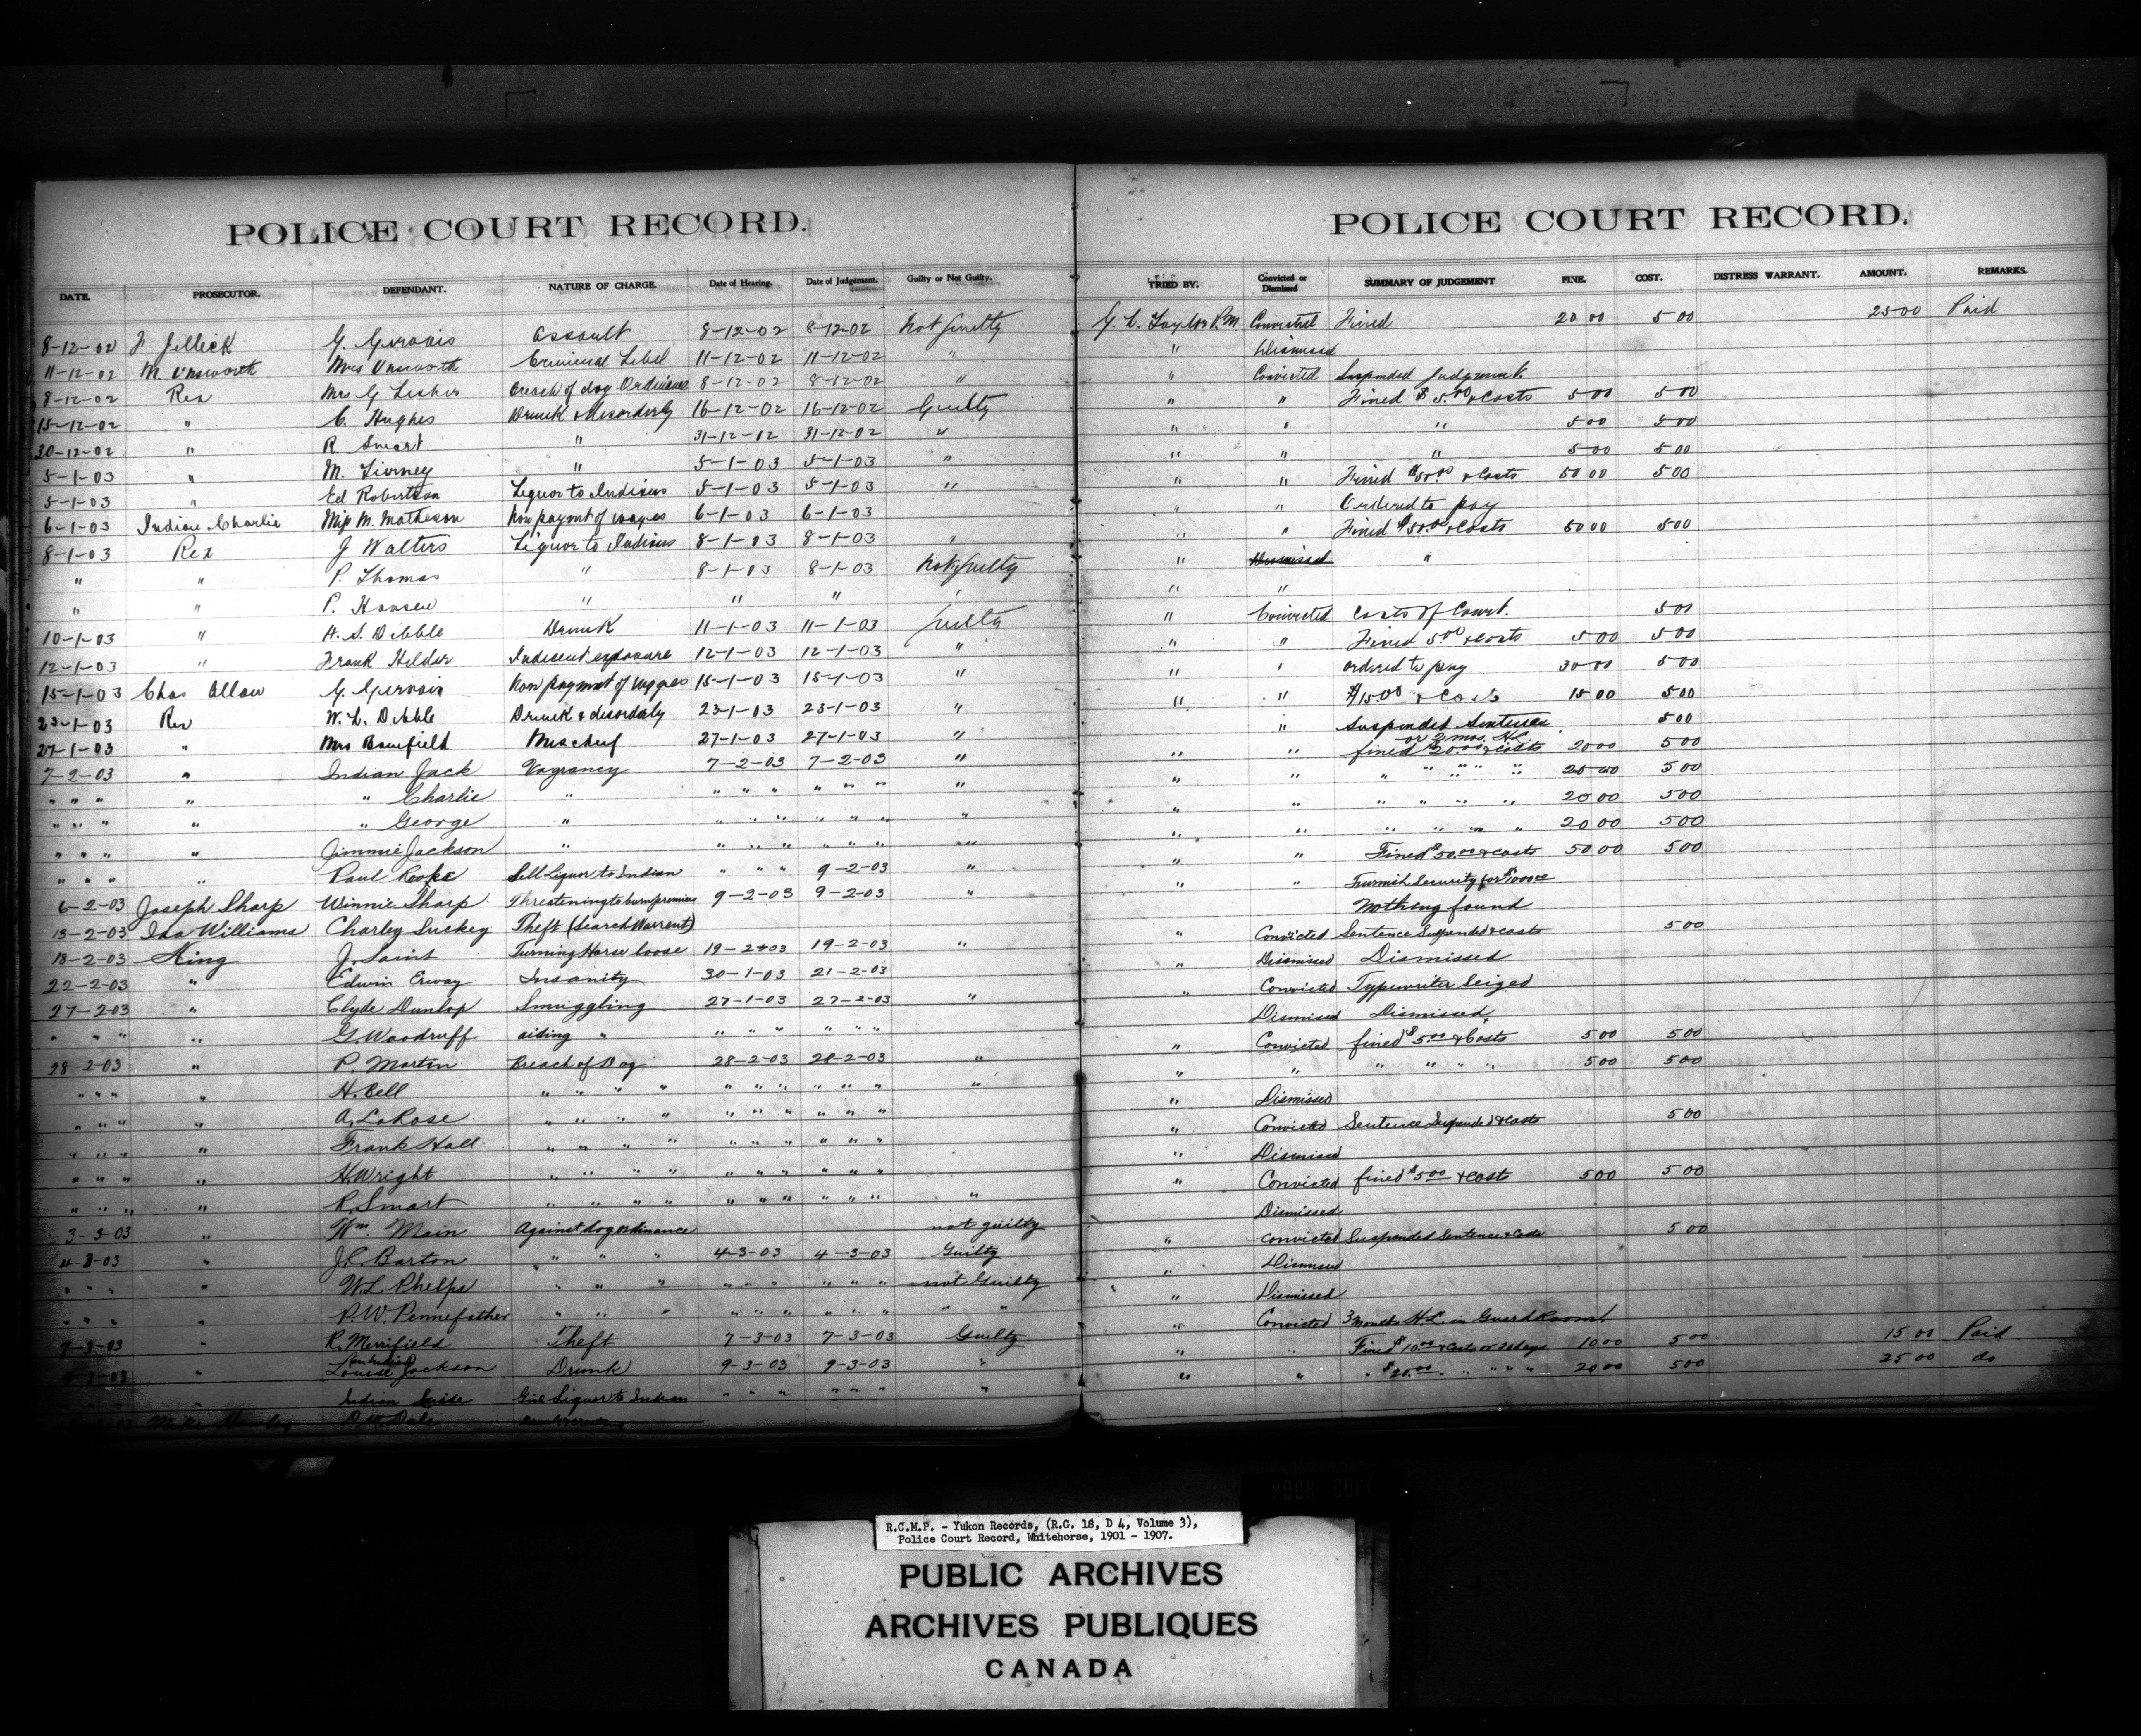 POLICE COURT RECORD.
DATE. PROSECUTOR. DEFENDANT. NATURE OF CHARGE. Date of Hearing. Date of Judgement. Guilty or Not Guilty.
8-12-02 J Jellick G. Gervais Assault 8-12-02 8-12-02 Not Guilty
11-12-02 M. Unsworth Mrs Unsworth Criminal Libel 11-12-02 11-12-02 "
8-12-02 Rex Mrs G Lesher Breach of dog Ordinance 8-12-02 8-12-02 "
15-12-02 " C. Hughes Drunk & Disorderly 16-12-02 16-12-02 Guilty
30-12-02 " R Smart " 31-12-02 31-12-02 "
5-1-03 " M. Tierney " 5-1-03 5-1-03 "
5-1-03 " Ed Robertson Liquor to Indians 5-1-03 5-1-03 "
6-1-03 Indian Charlie Miss M. Matheson Non paymt of wages 6-1-03 6-1-03
8-1-03 Rex J Walters Liquor to Indians 8-1-03 8-1-03 "
" " P. Thomas " 8-1-03 8-1-03 Not Guilty
" " P. Hansen " " " "
10-1-03 " H. S. Dibble Drunk 11-1-03 11-1-03 Guilty
12-1-03 " Frank Hilder Indecent exposure 12-1-03 12-1-03 "
15-1-03 Chas Allan G. Gervais Non payment of wages 15-1-03 15-1-03 "
23-1-03 Rex W. L. Dibble Drunk & disorderly 23-1-03 23-1-03 "
27-1-03 " Mrs Banfield Mischief 27-1-03 27-1-03 "
7-2-03 " Indian Jack Vagrancy 7-2-03 7-2-03 "
" " " " " Charlie " " " " " " " "
" " " " " George " " " " " " " "
" " " " Jimmie Jackson " " " " " " " "
" " " " Paul Sell Liquor to Indian " " " 9-2-03 "
6-2-03 Joseph Sharp Winnie Sharp Threatening to burn premises 9-2-03 9-2-03 "
13-2-03 Ida Williams Charley Luckey Theft (Search Warrent)
18-2-03 King J. Saint Turning Horse loose 19-2-03 19-2-03 "
22-2-03 " Edwin Erway Insanity 30-1-03 21-2-03
27-2-03 " Clyde Dunlop Smuggling 27-1-03 27-2-03 "
" " " " G. Woodruff aiding " " " " " " "
28-2-03 " P. Martin Breach of Dog 28-2-03 28-2-03 "
" " " " H. Bell " " " " " " " " " " "
" " " " A. LaRose " " " " " " " " " "
" " " " Frank Hall " " " " " " " " " "
" " " " H. Wright " " " " " " " " " "
" " " " R. Smart " " " " " " " " " " "
3-3-03 " Wm. Main Against dog ordinance not guilty
4-3-03 " J. C. Barton " " " 4-3-03 4-3-03 Guilty
" " " " W. L. Phelps " " " " " " " " " not Guilty
" " " " P. W. Pennefather " " " " " " " " " " "
7-3-03 " R. Merrifield Theft 7-3-03 7-3-03 Guilty
9-3-03 " Louise Jackson Drunk 9-3-03 9-3-03 "
Indian Give Liquor to Indian " " " " " " "
Mike P. W. Dale
POLICE COURT RECORD.
TRIED BY. Convicted or Dismissed SUMMARY OF JUDGEMENT FINE. COST. DISTRESS WARRANT. AMOUNT. REMARKS.
G. L. Taylor P.M Convicted Fined 20 00 5 00 25 00 Paid
" Dismissed
" Convicted Suspended Judgment
" " Fined $5.00 & Costs 5 00 5 00
" " " 5 00 5 00
" " " 5 00 5 00
" " Fined $50.00 & Costs 50 00 5 00
" " Ordered to pay
" " Fined $50.00 & Costs 50 00 5 00
" Dismissed "
" "
" Convicted Costs of Court. 5 00
" " Fined 5.00 & costs 5 00 5 00
" " ordered to pay 30 00 5 00
" " $15.00 & Costs 15 00 5 00
" Suspended Sentence 5 00
or 2 mos. H.L.
" " fined $20.00 & costs 20 00 5 00
" " " " " " " 20 00 5 00
" " " " " " 20 00 5 00
" " " " " " 20 00 5 00
" " Fined $50.00 & costs 50 00 5 00
" " Furnish Security for $1000.00
Nothing found
" Convicted Sentence Suspended & costs 5 00
" Dismissed Dismissed
" Convicted Typewriter Seized
Dismissed Dismissed
" Convicted fined $5.00 & Costs 5 00 5 00
" " " " " " 5 00 5 00
" Dismissed
" Convicted Sentence Suspended & costs 5 00
" Dismissed
" Convicted fined $5.00 & costs 5 00 5 00
Dismissed
" convicted Suspended Sentence & Costs 5 00
" Dismissed
" Dismissed
" Convicted 3 Months H.L. in Guard Room
" " Fined $10.00 & costs or days 10 00 5 00 15 00 Paid
" " " $20.00 " " " " 20 00 5 00 25 00 do
POOR COPY
R.C.M.P. - Yukon Records, (R.G. 18, D 4, Volume 3),
Police Court Record, Whitehorse, 1901 - 1907.
PUBLIC ARCHIVES
ARCHIVES PUBLIQUES
CANADA